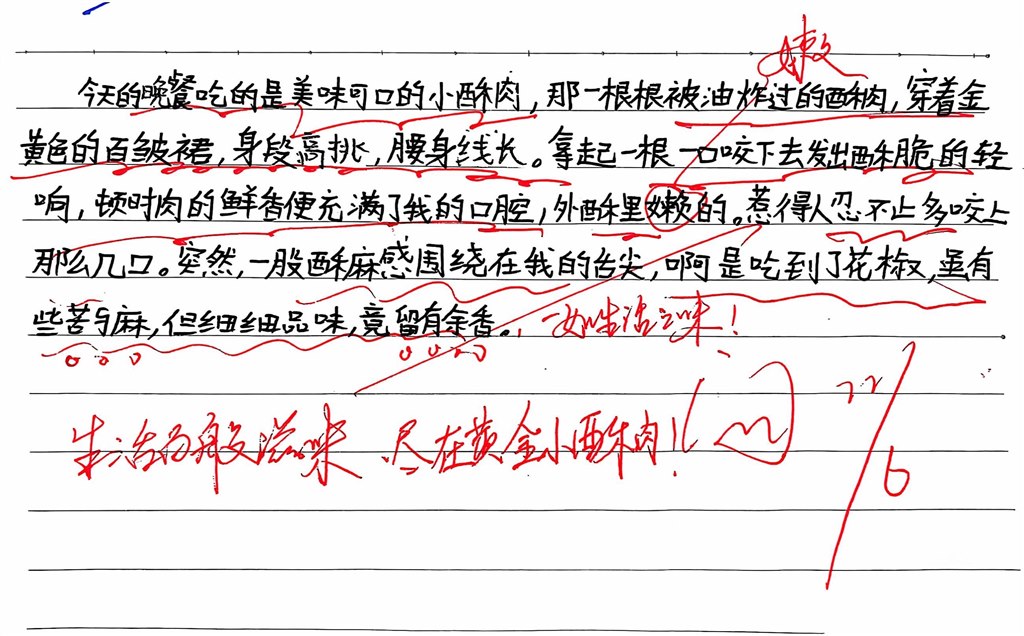 嫩
今天的晚餐吃的是美味可口的小酥肉，那一根根被油炸过的酥肉，穿着金
黄色的百皱裙，身段高挑，腰身线长。拿起一根一口咬下去发出酥脆的轻
响，顿时肉的鲜香便充满了我的口腔，外酥里嫩的。惹得人忍不止多咬上
那么几口。突然，一股酥麻感围绕在我的舌尖，啊是吃到了花椒，虽有
些苦与麻，但细细品味，竟留有余香。一如生活之味！
生活百般滋味 尽在黄金小酥肉！
22/6